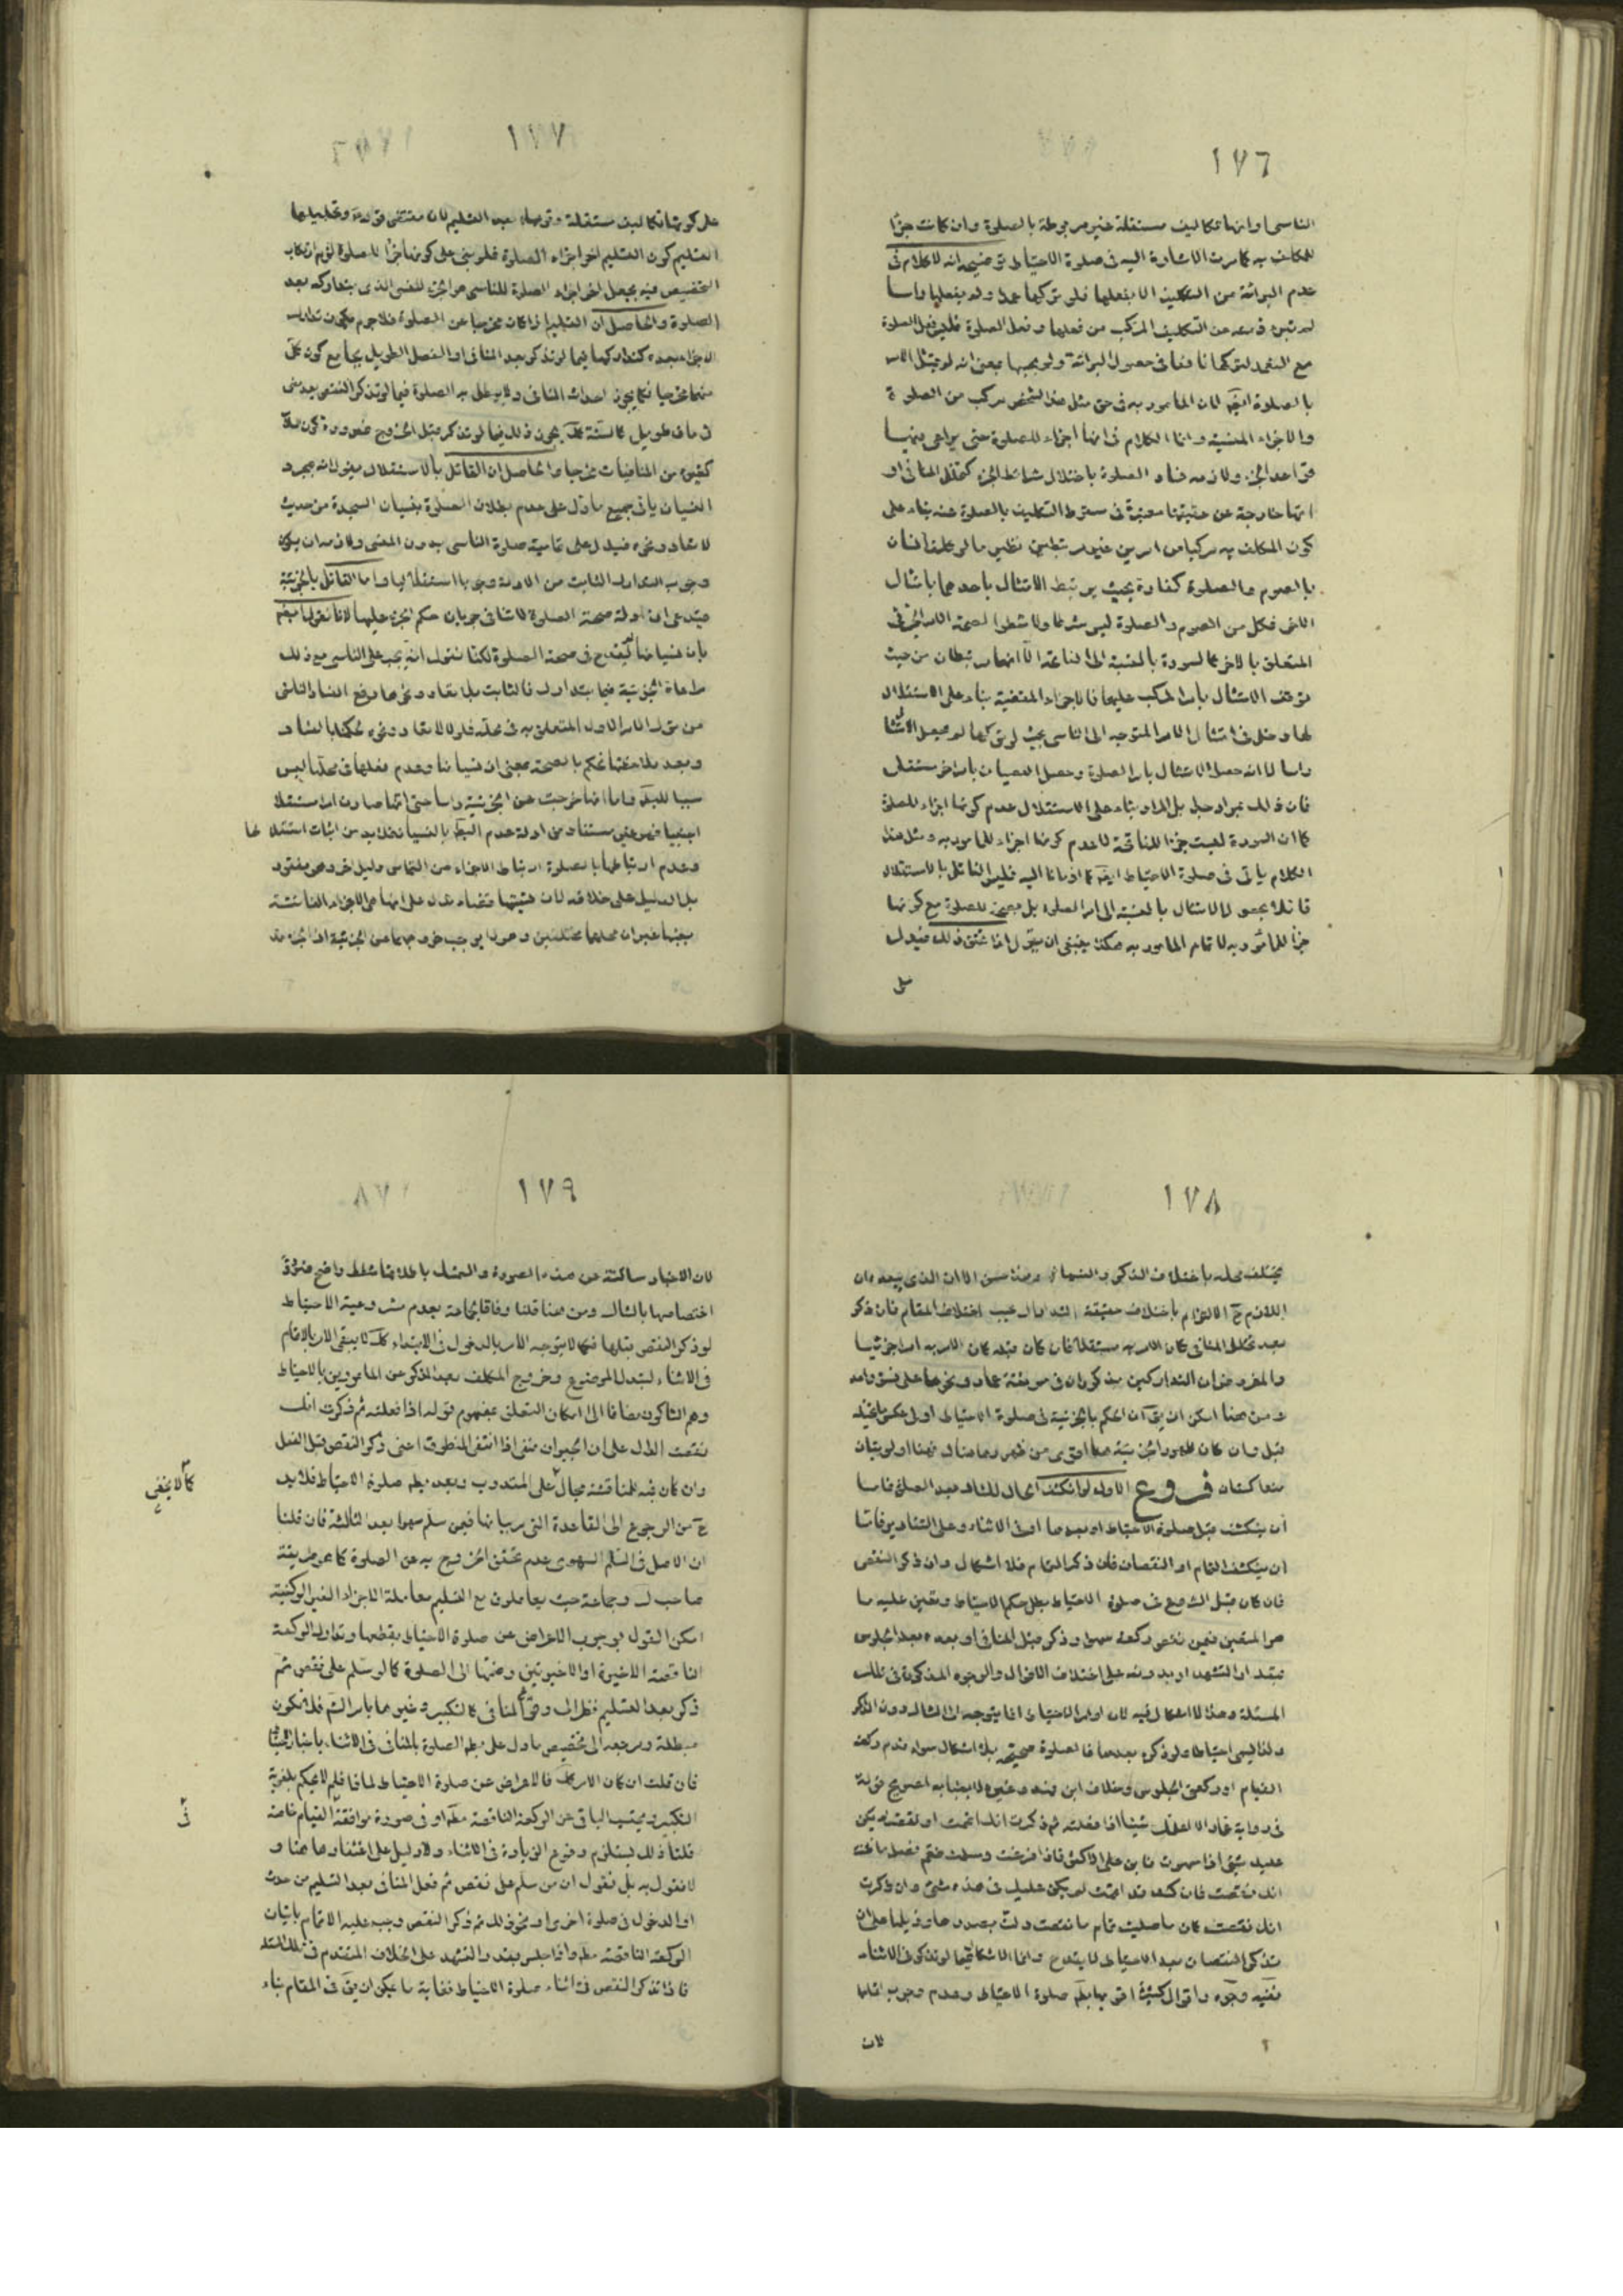 ١٧٦
الناسى اوانها تكاليف مستقلة غير مربوطة بالصلوة وان كانت جزءًا
للمكلف به كما مرت الاشارة اليه فى صلوة الاحتياط توضيحه انه لا كلام فى
عدم البرائة من التكليف الا بفعلها فلو تركها عمدا ولم يفعلها راسا
لم تبرء ذمته عن التكليف المركب من فعلها وفعل الصلوة فليس فعل الصلوة
مع التعمد لتركها نافعا فى حصول البرائة ولو بحبها بمعنى انه لم يمتثل الامر
بالصلوة ايضا لان المأمور به فى حق مثل هذا الشخص مركب من الصلوة
والاجزاء المنسية وانما الكلام فى انها اجزاء للصلوة حتى يراعى فيها
قواعد الجزء ولازمه فساد الصلوة باختلال شرائط الجزء كتخلل المنافى او
انها خارجة عن حقيقتها معتبرة فى سقوط التكليف بالصلوة عنه بناء على
كون المكلف به مركبا من امرين غير مرتبطين نظير ما لو كلف انسان
بالصوم والصلوة كفارة بحيث يرتبط الامتثال باحدهما بامتثال
الاخر فكل من الصوم والصلوة ليس شرطا ولا شطرا لصحة الامر الجزئى
المتعلق بالاخر كالسورة بالنسبة الى الفاتحة الا انهما مرتبطان من حيث
توقف الامتثال بامر المركب عليهما فالاجزاء المقضية بناء على الاستقلال
لها دخل فى امتثال الامر المتوجه الى الناسى بحيث لو تركها لم يحصل الامتثال
راسا لا انه حصل الامتثال بامر الصلوة وحصل العصيان بامر اخر مستقل
فان ذلك غير مراد جدا بل المراد بناء على الاستقلال عدم كونها اجزاء للصلوة
كما ان السورة ليست جزءا للفاتحة لا عدم كونها اجزاء للمأمور به ومثل هذا
الكلام يأتى فى صلوة الاحتياط ايضا كما اومانا اليه فليس القائل بالاستقلال
قائلا بحصول الامتثال بالنسبة الى امر الصلوة بل بصحة الصلوة مع كونها
جزءا للمأمور به لا تمام المأمور به هكذا ينبغى ان يقال اذا تحقق ذلك فيدل
على
١٧٧
على كونها تكاليف مستقلة وقوعها بعد التسليم لان مقتضى قوله وتحليلها
التسليم كون التسليم اخر اجزاء الصلوة فلو بنى على كونها جزءا للصلوة لزم ارتكاب
التخصيص فيه بجعل اخر اجزاء الصلوة للناسى هو الجزء المنسى الذى يتداركه بعد
الصلوة والحاصل ان التسليم اذا كان مخرجا عن الصلوة فلا جرم يكون تدارك
الاجزاء بعده كتداركها فيما لو تذكر بعد المنافى او الفصل الطويل بجامع كون كل
منهما مخرجا فكما يجوز احداث المنافى ولا يدخل به الصلوة فيما لو تذكر النقص بعد مضى
زمان طويل كالسنة كك يجوز ذلك فيما لو تذكر قبل الخروج ضرورة كون السلام
كغيره من المنافيات مخرجا والحاصل ان القائل بالاستقلال يقول انه بمجرد
النسيان يأتى جميع ما دل على عدم بطلان الصلوة بنسيان السجدة من حديث
لا تعاد ونحوه فيدل على تمامية صلوة الناسى بدون المنسى ولازمه ان يكون
وجوب التدارك الثابت من الادلة وجوبا استقلاليا واما القائل بالجزئية
فيدعى ان ادلة صحة الصلوة لا تنافى جريان حكم الجزء عليها لانا نقول بصحتها
بان نسيانها لم يقدح فى صحة الصلوة لكنا نقول انه يجب على الناسى مع ذلك
مراعاة الجزئية فيما يتدارك فالثابت بلا تعاد ونحوها رفع الفساد الناشى
من ترك الامر الاول المتعلق به فى محله فلولا لا تعاد ونحوه لحكمنا بالفساد
وبعد ملاحظتها نحكم بالصحة بمعنى ان نسيانها وعدم فعلها فى محلها ليس
سببا للبطلان واما انها خرجت عن الجزئية راسا حتى انها صارت امرا مستقلا
اجنبيا فهو غير مستفاد من ادلة عدم البطلان بالنسيان فلا بد من اثبات استقلالها
وعدم ارتباطها بالصلوة ارتباط الاجزاء من التماس دليل اخر وهو مفقود
بل الدليل على خلافه لان تسميتها قضاء تدل على انها هى الاجزاء الفائتة
بعينها غير ان محلها مختلفين وهو لا يوجب خروجهما عن الجزئية اذ الجزء قد
١٧٨
يختلف محله باختلاف الذكر والنسيان
اللازم ح الالتزام باختلاف حقيقة التدارك بحسب اختلاف المقام فان ذكر
بعد تخلل المنافى كان الامر به مستقلا فان كان قبله كان الامر به امرا جزئيا
والمفروض ان التداركين مذكوران فى موثقة عمار ونحوها على نسق واحد
ومن هنا امكن ان يق ان الحكم بالجزئية فى صلوة الاحتياط اولى عكس ما تخيله
قبل وان كان ظهور الجزئية هنا اقوى من ظهورها هناك فهنا اولويتان
متعاكستان فروع الاول لو انكشف الحال للشاك بعد الصلوة فاما
ان ينكشف قبل صلوة الاحتياط او بعدها او فى الاثناء وعلى التقادير فاما
ان ينكشف التمام او النقصان فان ذكر التمام فلا اشكال وان ذكر النقص
فان كان قبل الشروع فى صلوة الاحتياط بطل حكم الاحتياط وتعين عليه ما
هو المتعين فيمن نقص ركعة سهوا وذكر قبل المنافى او بعده وبعد الجلوس
بقدر التشهد او بدونه على اختلاف الاقوال والوجوه المذكورة فى تلك
المسئلة وهذا لا اشكال فيه لان اوامر الاحتياط انما يتوجه الى الشاك دون الذاكر
ولذا يسمى احتياطا ولو ذكره بعدها فالصلوة صحيحة بلا اشكال سواء قدم ركعة
القيام او ركعتى الجلوس وخلاف ابن فهد وغيره لا يعبأ به لصريح قوله
فى رواية عمار الا اعلمك شيئا اذا فعلته ثم ذكرت انك اتممت او نقصت لم يكن
عليك شئ اذا سهوت فابن على الاكثر فاذا فرغت وسلمت فقم فصل ما ظننت
انك نقصت فان كنت قد اتممت لم يكن عليك فى هذه شئ وان ذكرت
انك نقصت كان ما صليت تمام ما نقصت دلت بصدرها وذيلها على ان
تذكر النقصان بعد الاحتياط لا يقدح وانما الاشكال فيما لو تذكر فى الاثناء
ففيه وجوه واقوال كثيرة اقويها بطلان صلوة الاحتياط وعدم وجوب اتمامها
لان
١٧٩
لان الاخبار ساكتة عن هذه الصورة والتمسك باطلاقها غلط واضح ضرورة
اختصاصها بالشاك ومن هنا قلنا وفاقا لجماعة بعدم مشروعية الاحتياط
لو ذكر النقص قبلها فكما لا يتوجه الامر بالدخول فى الابتداء كك لا يبقى الامر بالاتمام
فى الاثناء لتبدل الموضوع وخروج المكلف بعد الذكر عن المأمورين بالاحتياط
وهم الشاكون مضافا الى امكان التعلق بمفهوم قوله اذا فعلته ثم ذكرت انك
نقصت الدال على ان الجبران منفى اذا انتفى المنطوق اعنى ذكر النقص قبل الفعل
وان كان فيه للمناقشة مجال على المتدرب وبعد بطلان صلوة الاحتياط فلا بد
ح من الرجوع الى القاعدة التى مر بيانها فيمن سلم سهوا بعد الثالثة فان قلنا
ان الاصل فى السلم السهوى عدم تحقق الخروج به عن الصلوة كما هو طريقة
صاحب ك وجماعة حيث يعاملون مع التسليم معاملة الاجزاء الغير الركنية
امكن القول بوجوب الاعراض عن صلوة الاحتياط بقطعها وتدارك الركعة
الناقصة الاخيرة او الاخيرتين وضمها الى الصلوة كما لو سلم على نقص ثم
ذكر بعد التسليم فظهر الى وقوع المنافى كالتكبيرة وغيرها بامر الشرع فلا تكون
مبطلة ومرجعه الى تخصيص ما دل على بطلان الصلوة بالمنافى فى الاثناء
فان قلت ان كان الامر كك فالاعراض عن صلوة الاحتياط لماذا فلم لا يحكم بلغوية
التكبيرة ويحتسب الباقى عن الركعة الناقصة مطلقا او فى صورة موافقة القيام خاصة
قلنا ذلك يستلزم وقوع الزيادة فى الاثناء ولا دليل على اغتفارها هنا و
لا نقول به بل نقول ان من سلم على نقص ثم فعل المنافى بعد التسليم من حدث
او الدخول فى صلوة اخرى او نحو ذلك ثم ذكر النقص وجب عليه الاتمام باتيان
الركعة الناقصة مطلقا او اذا جلس بقدر التشهد على الخلاف المتقدم فى تلك المسئلة
فاذا تذكر النقص فى اثناء صلوة الاحتياط فغاية ما يمكن ان يق فى المقام بناء
كما لا يخفى
فى